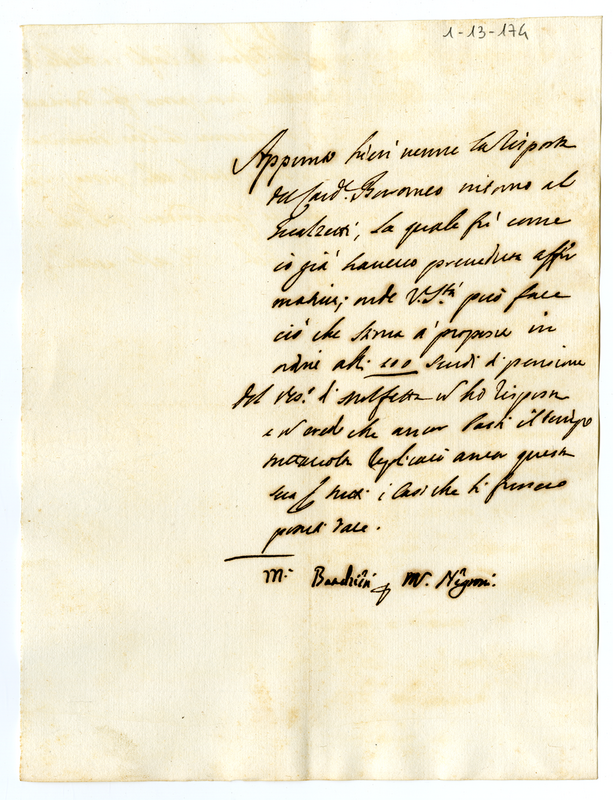 1-13-174
Appena hieri venne la risposta
del Card.l Boromeo intorno al
la quale fù come
io già havevo preveduta affir
mativa; onde V. S.tà può fare
ciò che stima à proposito in
ordine alli 200 scudi di pensione
del Ves.o di Molfetta nè hò risposta
e nè credo che ancor basti il tempo
replicarò ancor questa
sera tutti i casi che si fussero
potuti dare.
M.r Banchieri p M. Nigroni.